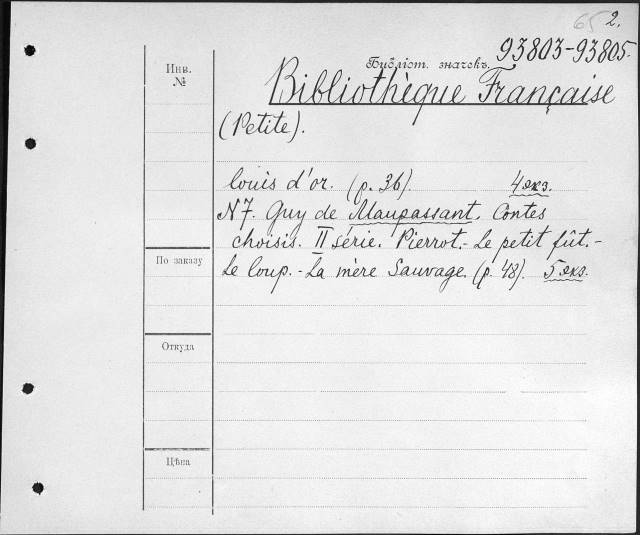 65 2.
Библіот. значекъ. 93803-93805.
Инв.
№
Bibliothèque Française
(Petite).
louis d'or. (p. 36). 4 экз.
N 7. Guy de Maupassant. Contes
choisis. II série. Pierrot. - Le petit fût. -
По заказу
Le loup. - La mère Sauvage. (p. 48). 5 экз.
Откуда
Цѣна